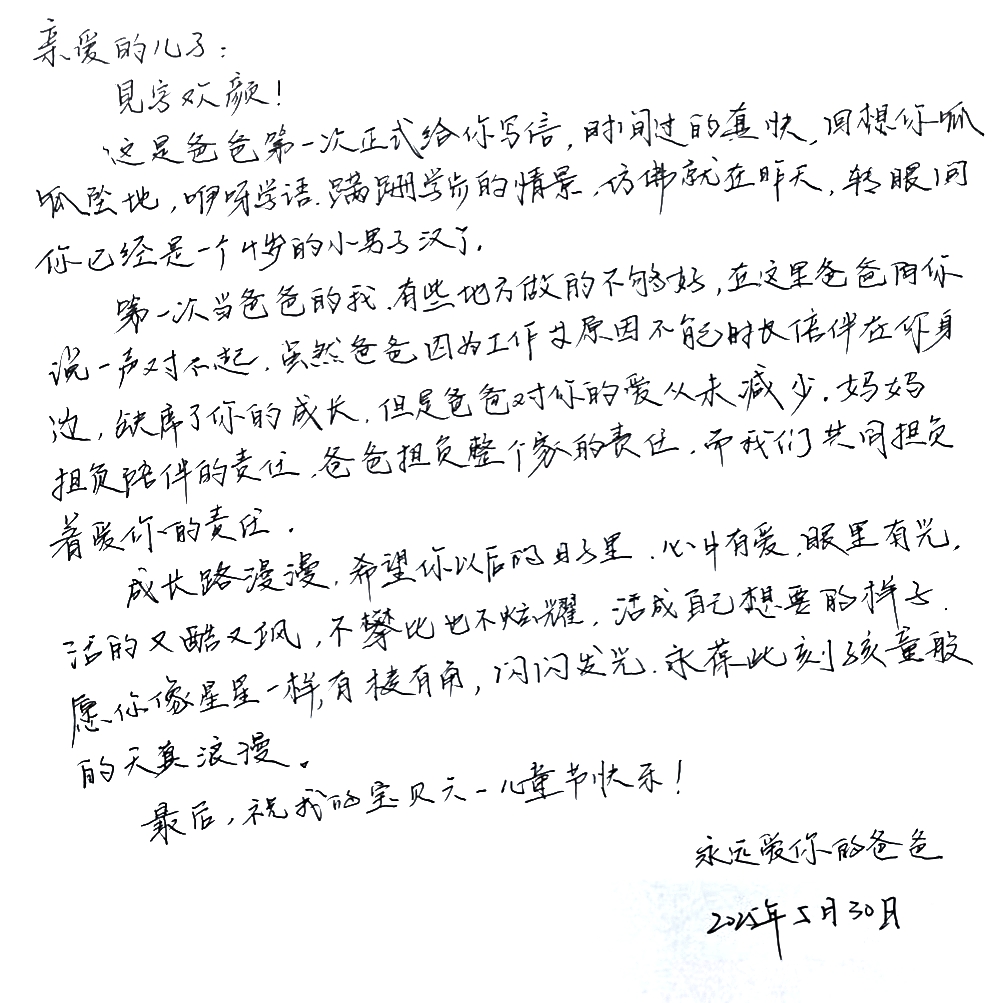 亲爱的儿子：
見字欢颜！
这是爸爸第一次正式给你写信，时间过的真快，回想你呱
呱坠地，咿呀学语，蹒跚学步的情景，仿佛就在昨天，转眼间
你已经是一个4岁的小男子汉了。
第一次当爸爸的我，有些地方做的不够好，在这里爸爸向你
说一声对不起，虽然爸爸因为工作原因不能时长倍伴在你身
边，缺席了你的成长，但是爸爸对你的爱从未减少，妈妈
担负陪伴的责任，爸爸担负整个家的责任，而我们共同担负
着爱你的责任。
成长路漫漫，希望你以后的日子里，心中有爱，眼里有光，
活的又酷又飒，不攀比也不炫耀，活成自己想要的样子，
愿你像星星一样，有棱有角，闪闪发光，永葆此刻孩童般
的天真浪漫。
最后，祝我的宝贝六一儿童节快乐！
永远爱你的爸爸
2025年5月30日